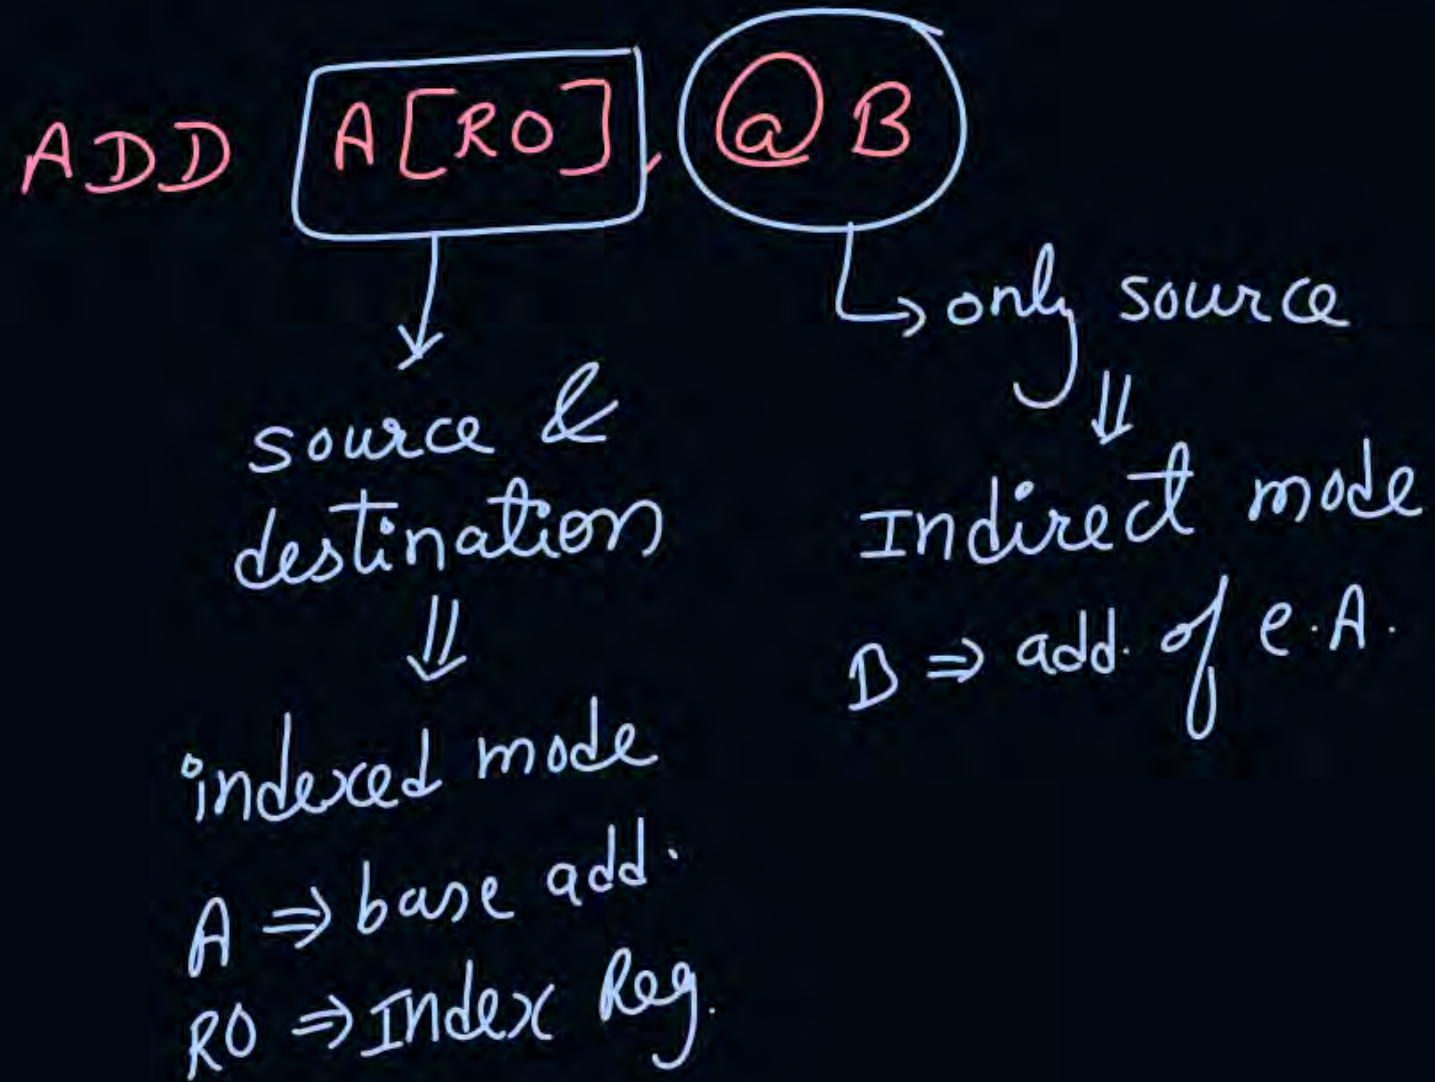 ADD A[R0], @B
source &
destination
indexed mode
A ⇒ base add.
R0 ⇒ Index Reg.
only source
Indirect mode
B ⇒ add. of e.A.